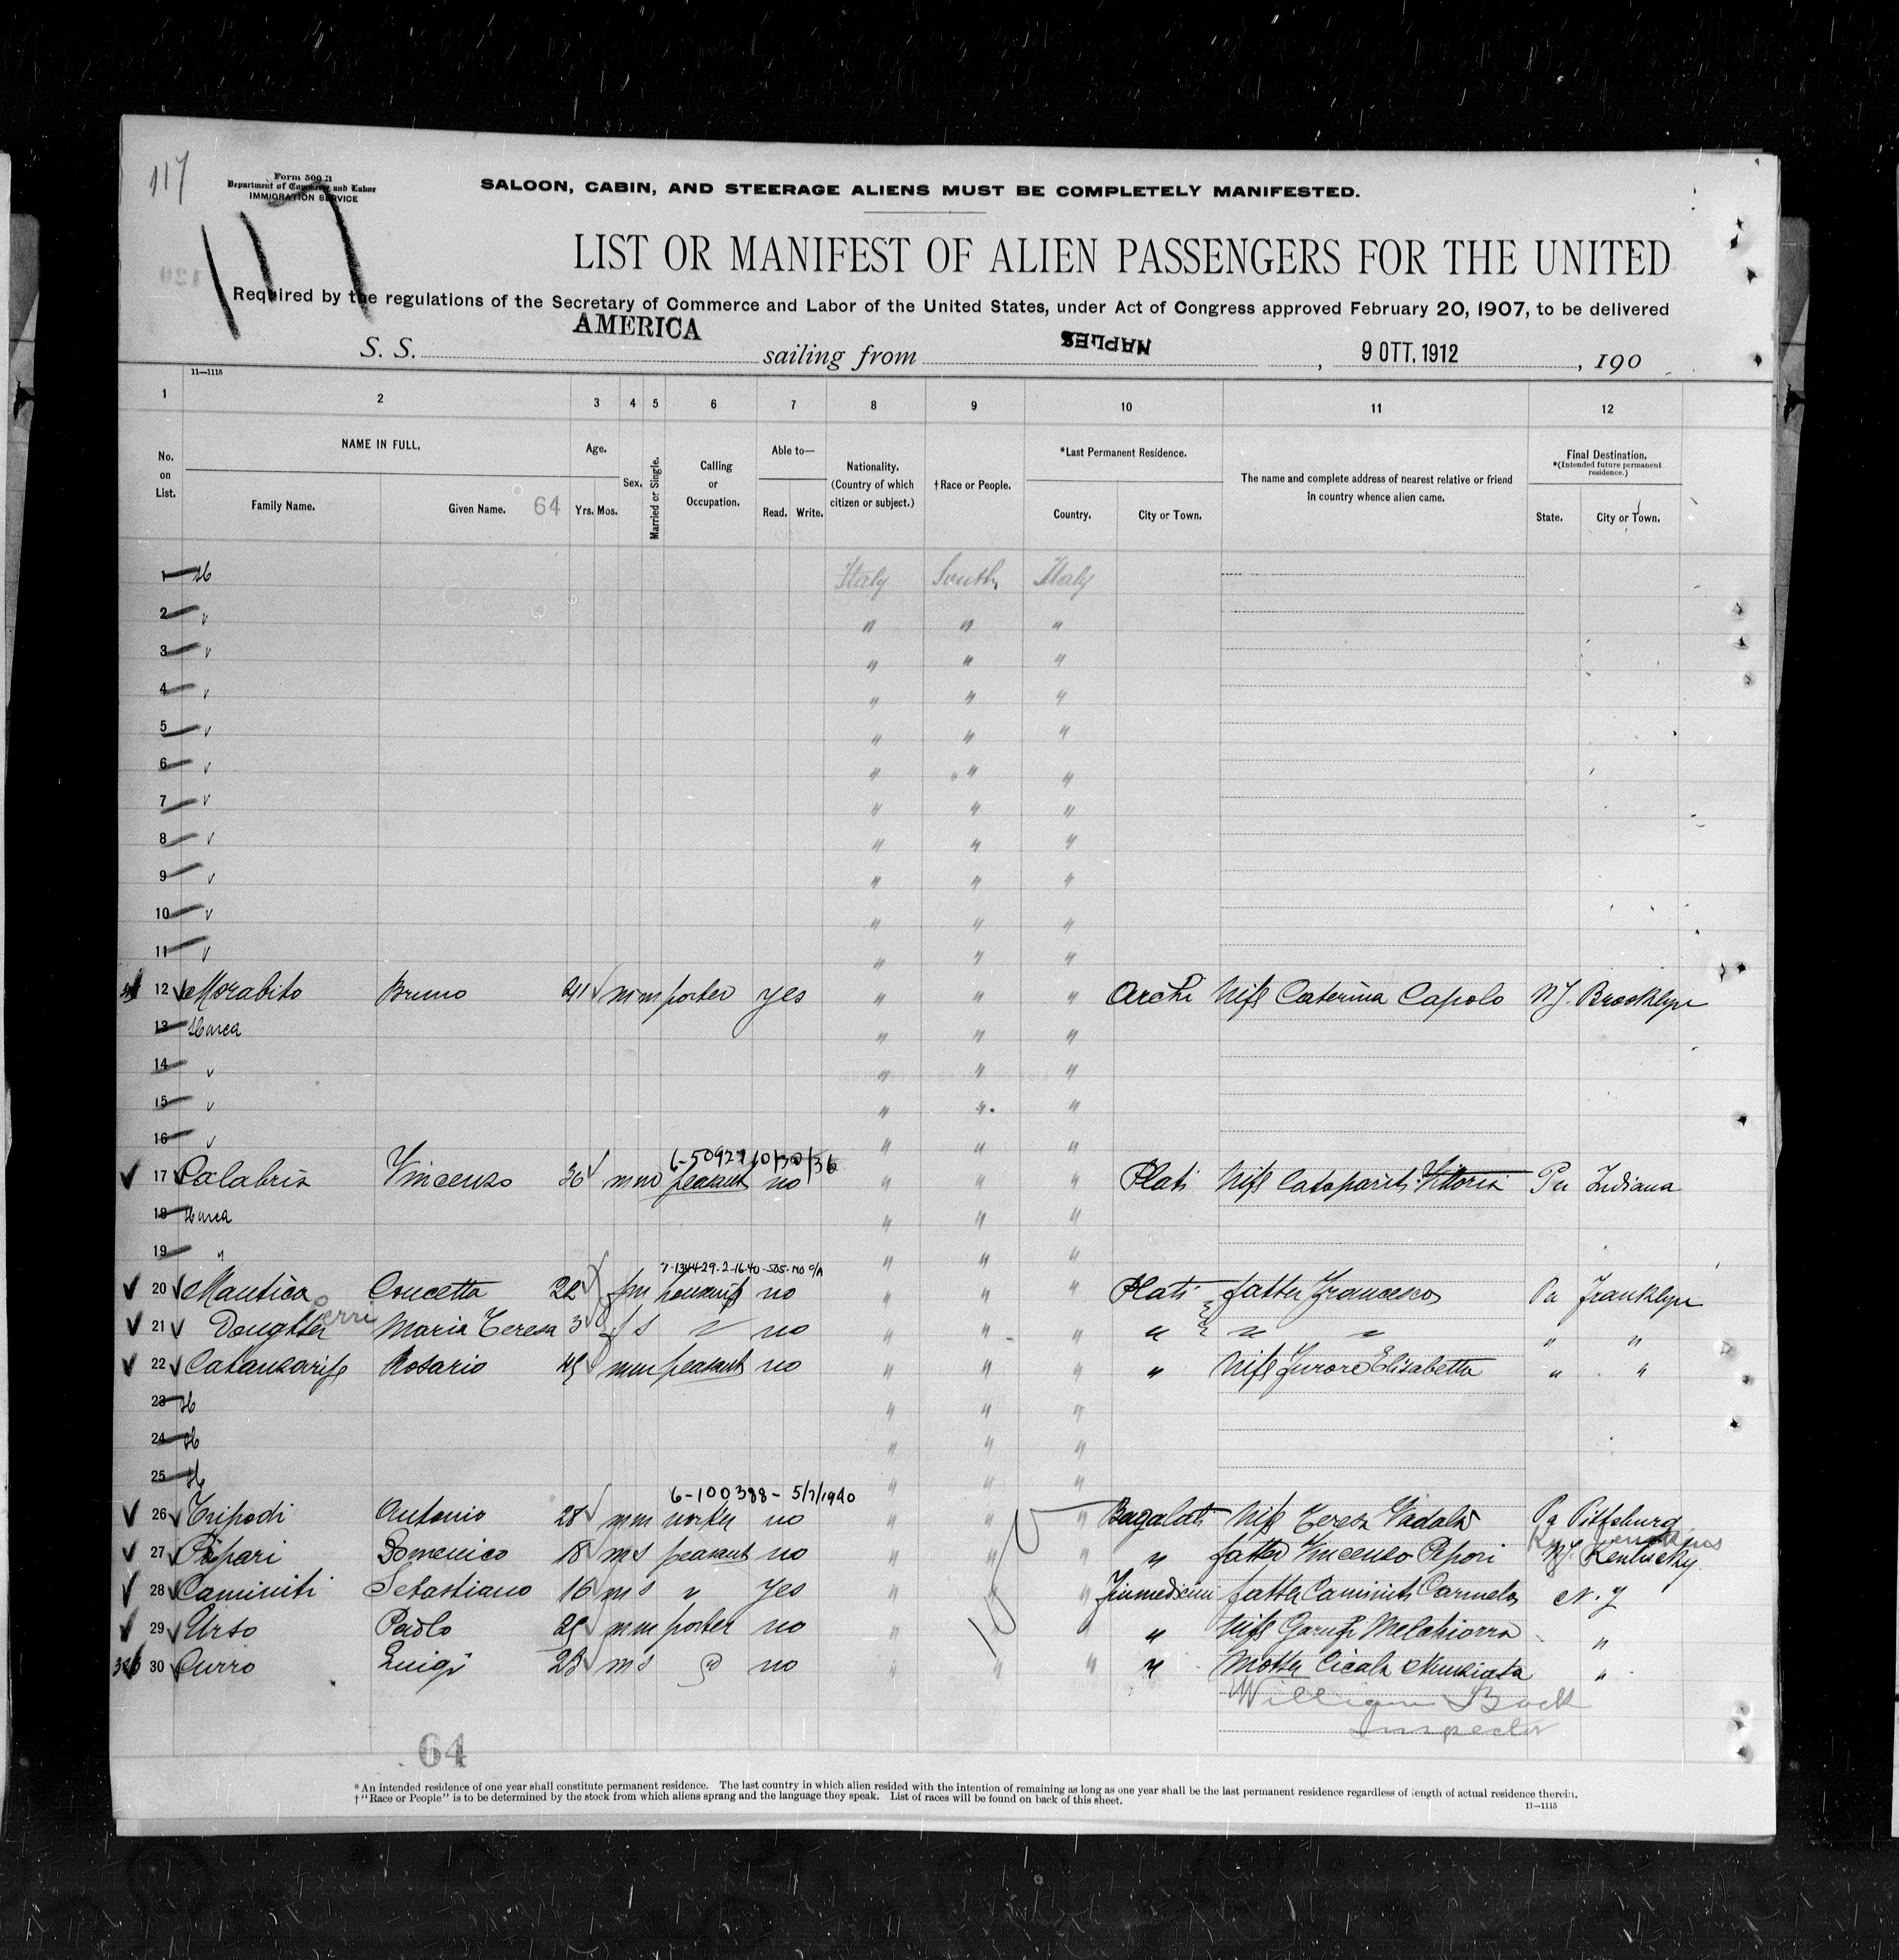 117
Form 500 B
Department of Commerce and Labor
IMMIGRATION SERVICE
SALOON, CABIN, AND STEERAGE ALIENS MUST BE COMPLETELY MANIFESTED.
117
LIST OR MANIFEST OF ALIEN PASSENGERS FOR THE UNITED
Required by the regulations of the Secretary of Commerce and Labor of the United States, under Act of Congress approved February 20, 1907, to be delivered
S. S. AMERICA sailing from NAPLES, 9 OTT. 1912, 190
11—1115
1 2 3 4 5 6 7 8 9 10 11 12
No. on List.
NAME IN FULL.
Family Name. Given Name. 64
Age.
Yrs. Mos.
Sex.
Married or Single.
Calling or Occupation.
Able to—
Read. Write.
Nationality. (Country of which citizen or subject.)
†Race or People.
*Last Permanent Residence.
Country. City or Town.
The name and complete address of nearest relative or friend in country whence alien came.
Final Destination.
*(Intended future permanent residence.)
State. City or Town.
1 Italy South Italy
2 " " "
3 " " "
4 " " "
5 " " "
6 " " "
7 " " "
8 " " "
9 " " "
10 " " "
11 " " "
12 Morabito Bruno 41 m m porter yes " " " Archi Wife Caterina Capolo NY. Brooklyn
13 " " "
14 " " "
15 " " "
16 " " "
6-50929 10/30/36
17 Calabria Vincenzo 36 m m peasant no " " " Plati Wife Vittoria Pa Indiana
18 " " "
19 " " " "
20 Mautica Concetta 22 f m no " " " Plati father Francesco Pa Franklyn
Perri
21 Doughter Maria Teresa 3 f s no " " " " " " " "
22 Rosario 45 m m peasant no " " " " Wife Elisabetta " "
23 " " "
24 " " "
25 " " "
6-100388- 5/7/1940
26 Tripodi Antonio 28 m m worker no " " " Bagaladi Wife Teresa Vadala Pa Pittsburg
27 Pipari Domenico 18 m s peasant no " " " " father Vincenzo Pepori Kentucky
28 Caminiti Sebastiano 16 m s " yes " " " father Caminiti Carmelo N. Y
29 Urso Paolo 25 m m porter no " " " " Wife Melchiorra "
30 Curro Luigi 23 m s no " " " " Mother Cicala Nunziata "
William Bock
Inspector
64
* An intended residence of one year shall constitute permanent residence. The last country in which alien resided with the intention of remaining as long as one year shall be the last permanent residence regardless of length of actual residence therein.
† "Race or People" is to be determined by the stock from which aliens sprang and the language they speak. List of races will be found on back of this sheet.
11—1115